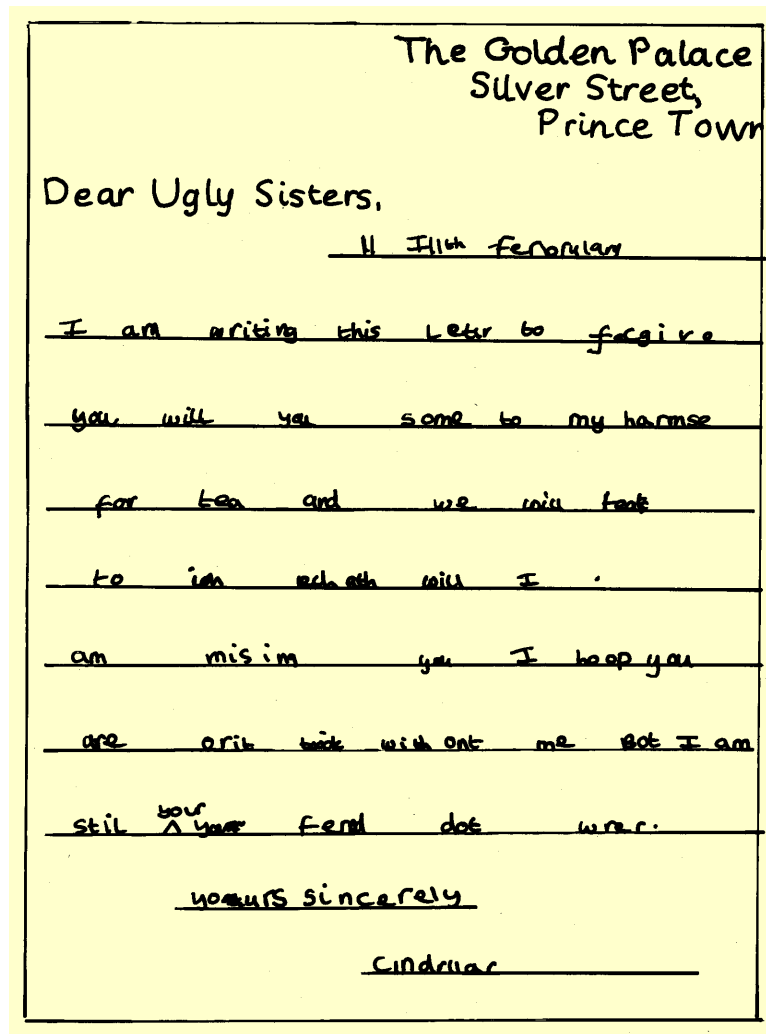 The Golden Palace
Silver Street,
Prince Town
Dear Ugly Sisters,
11 I11th
I am writing this Letr to forgive
you will you some to my harmse
for tea and we will
to will I .
am misim you I hoop you
are orit with ont me Bot I am
stil your fend dot wrer.
yours sincerely
Cindruar